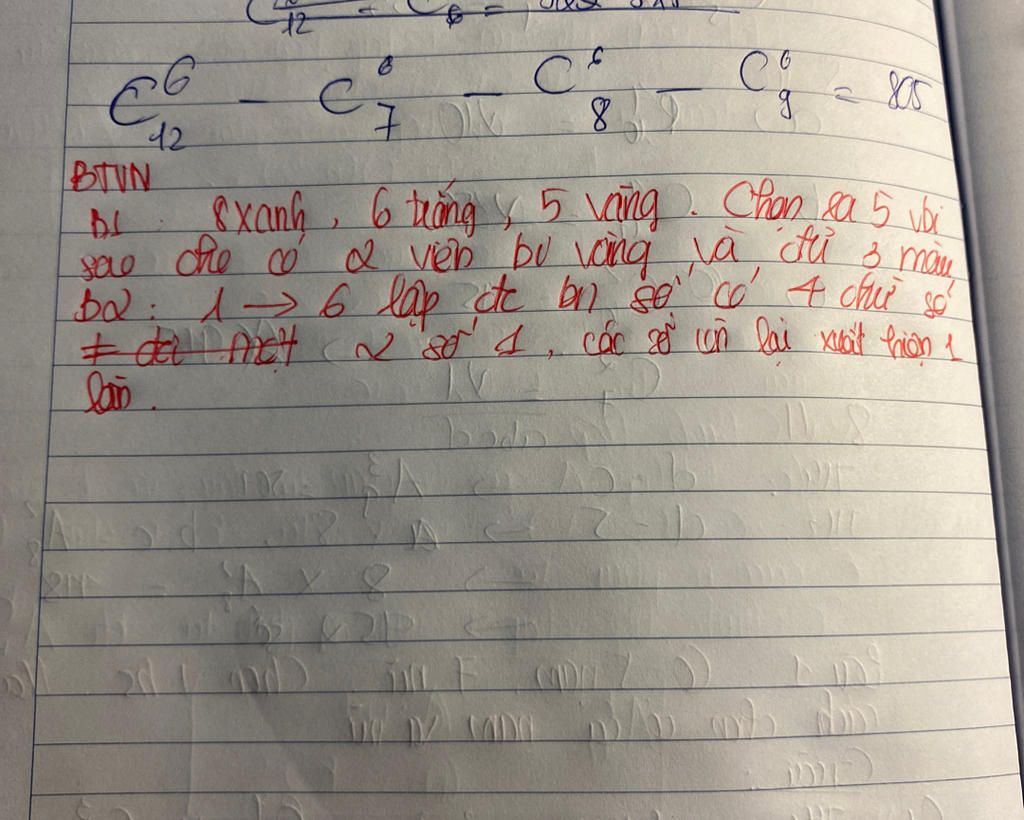 C⁶₁₂ - C⁶₇ - C⁶₈ - C⁶₉ = 805
BTVN
B1: 8 xanh, 6 trắng, 5 vàng. Chọn ra 5 vbi
sao cho có 2 viên bi vàng và đủ 3 màu
B2: 1 → 6 lập đc bn số có 4 chữ số
2 số 1, các số còn lại xuất hiện 1
lần.